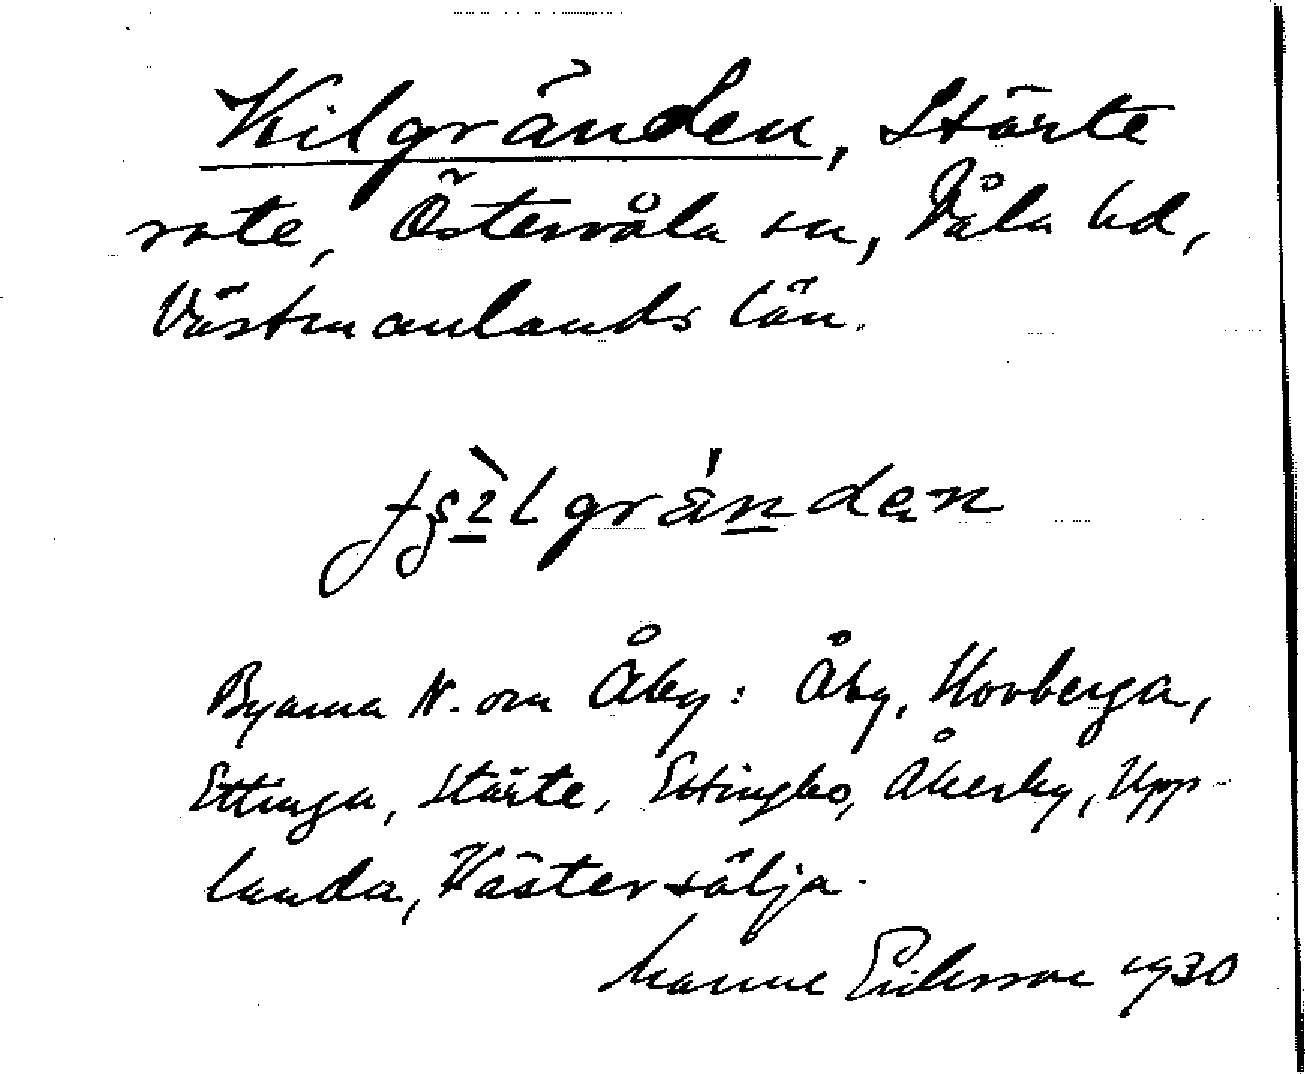 Kilgränden, Stärte
rote, Östervåla sn, Våla hd,
Västmanlands län.
Byarna N. om Åby: Åby, Hovberga,
Ettinga, Stärte, Ettingbo, Åkerby, Upp-
landa, Västersälja.
Manne Eriksson 1930